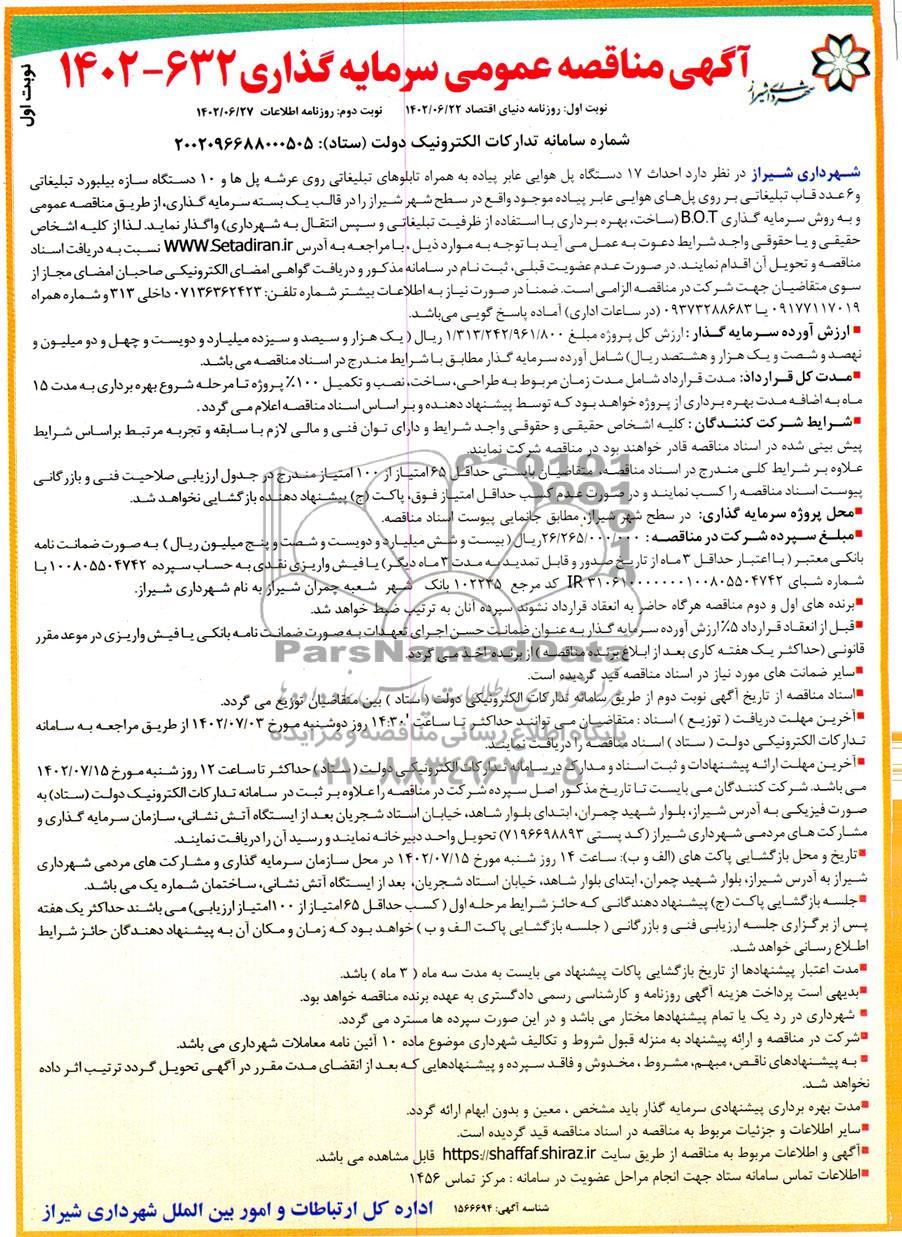 آگهی مناقصه عمومی سرمایه گذاری ۶۳۲-۱۴۰۲
نوبت اول
نوبت اول: روزنامه دنیای اقتصاد ۱۴۰۲/۰۶/۲۲ نوبت دوم: روزنامه اطلاعات ۱۴۰۲/۰۶/۲۷
شماره سامانه تدارکات الکترونیک دولت (ستاد): ۲۰۰۲۰۹۶۶۸۸۰۰۰۵۰۵
شهرداری شیراز در نظر دارد احداث ۱۷ دستگاه پل هوایی عابر پیاده به همراه تابلوهای تبلیغاتی روی عرشه پل ها و ۱۰ دستگاه سازه بیلبورد تبلیغاتی
و ۶ عدد قاب تبلیغاتی بر روی پل‌های هوایی عابر پیاده موجود واقع در سطح شهر شیراز را در قالب یک بسته سرمایه گذاری، از طریق مناقصه عمومی
و به روش سرمایه گذاری B.O.T (ساخت، بهره برداری با استفاده از ظرفیت تبلیغاتی و سپس انتقال به شهرداری) واگذار نماید. لذا از کلیه اشخاص
حقیقی و یا حقوقی واجد شرایط دعوت به عمل می آید با توجه به موارد ذیل، با مراجعه به آدرس WWW.Setadiran.ir نسبت به دریافت اسناد
مناقصه و تحویل آن اقدام نمایند. در صورت عدم عضویت قبلی، ثبت نام در سامانه مذکور و دریافت گواهی امضای الکترونیکی صاحبان امضای مجاز از
سوی متقاضیان جهت شرکت در مناقصه الزامی است. ضمناً در صورت نیاز به اطلاعات بیشتر شماره تلفن: ۰۷۱۳۶۳۶۲۴۲۳ داخلی ۳۱۳ و شماره همراه
۰۹۱۷۷۱۱۷۰۱۹ یا ۰۹۳۷۳۲۸۸۶۸۳ (در ساعات اداری) آماده پاسخ گویی می‌باشد.
ارزش آورده سرمایه گذار: ارزش کل پروژه مبلغ ۱/۳۱۳/۲۴۲/۹۶۱/۸۰۰ ریال (یک هزار و سیصد و سیزده میلیارد و دویست و چهل و دو میلیون و
نهصد و شصت و یک هزار و هشتصد ریال) شامل آورده سرمایه گذار مطابق با شرایط مندرج در اسناد مناقصه می باشد.
مدت کل قرارداد: مدت قرارداد شامل مدت زمان مربوط به طراحی، ساخت، نصب و تکمیل ۱۰۰٪ پروژه تا مرحله شروع بهره برداری به مدت ۱۵
ماه به اضافه مدت بهره برداری از پروژه خواهد بود که توسط پیشنهاد دهنده و بر اساس اسناد مناقصه اعلام می گردد.
شرایط شرکت کنندگان: کلیه اشخاص حقیقی و حقوقی واجد شرایط و دارای توان فنی و مالی لازم با سابقه و تجربه مرتبط براساس شرایط
پیش بینی شده در اسناد مناقصه قادر خواهند بود در مناقصه شرکت نمایند.
علاوه بر شرایط کلی مندرج در اسناد مناقصه، متقاضیان بایستی حداقل ۶۵ امتیاز از ۱۰۰ امتیاز مندرج در جدول ارزیابی صلاحیت فنی و بازرگانی
پیوست اسناد مناقصه را کسب نمایند و در صورت عدم کسب حداقل امتیاز فوق، پاکت (ج) پیشنهاد دهنده بازگشایی نخواهد شد.
محل پروژه سرمایه گذاری: در سطح شهر شیراز، مطابق جانمایی پیوست اسناد مناقصه.
مبلغ سپرده شرکت در مناقصه: ۲۶/۲۶۵/۰۰۰/۰۰۰ ریال (بیست و شش میلیارد و دویست و شصت و پنج میلیون ریال) به صورت ضمانت نامه
بانکی معتبر (با اعتبار حداقل ۳ ماه از تاریخ صدور و قابل تمدید به مدت ۳ ماه دیگر) یا فیش واریزی نقدی به حساب سپرده ۱۰۰۸۰۵۵۰۴۷۴۲ با
شماره شبای IR ۳۱۰۶۱۰۰۰۰۰۰۰۱۰۰۸۰۵۵۰۴۷۴۲ کد مرجع ۱۰۲۲۴۵ بانک شهر شعبه چمران شیراز به نام شهرداری شیراز.
برنده های اول و دوم مناقصه هرگاه حاضر به انعقاد قرارداد نشوند سپرده آنان به ترتیب ضبط خواهد شد.
قبل از انعقاد قرارداد ۵٪ ارزش آورده سرمایه گذار به عنوان ضمانت حسن اجرای تعهدات به صورت ضمانت نامه بانکی یا فیش واریزی در موعد مقرر
قانونی (حداکثر یک هفته کاری بعد از ابلاغ برنده مناقصه) از برنده اخذ می گردد.
سایر ضمانت های مورد نیاز در اسناد مناقصه قید گردیده است.
اسناد مناقصه از تاریخ آگهی نوبت دوم از طریق سامانه تدارکات الکترونیکی دولت (ستاد) بین متقاضیان توزیع می گردد.
آخرین مهلت دریافت (توزیع) اسناد: متقاضیان می توانند حداکثر تا ساعت ۱۴:۳۰ روز دوشنبه مورخ ۱۴۰۲/۰۷/۰۳ از طریق مراجعه به سامانه
تدارکات الکترونیکی دولت (ستاد) اسناد مناقصه را دریافت نمایند.
آخرین مهلت ارائه پیشنهادات و ثبت اسناد و مدارک در سامانه تدارکات الکترونیکی دولت (ستاد) حداکثر تا ساعت ۱۲ روز شنبه مورخ ۱۴۰۲/۰۷/۱۵
می باشد. شرکت کنندگان می بایست تا تاریخ مذکور اصل سپرده شرکت در مناقصه را علاوه بر ثبت در سامانه تدارکات الکترونیک دولت (ستاد) به
صورت فیزیکی به آدرس شیراز، بلوار شهید چمران، ابتدای بلوار شاهد، خیابان استاد شجریان بعد از ایستگاه آتش نشانی، سازمان سرمایه گذاری و
مشارکت های مردمی شهرداری شیراز (کد پستی ۷۱۹۶۶۹۸۸۹۳) تحویل واحد دبیرخانه نمایند و رسید آن را دریافت نمایند.
تاریخ و محل بازگشایی پاکت های (الف و ب): ساعت ۱۴ روز شنبه مورخ ۱۴۰۲/۰۷/۱۵ در محل سازمان سرمایه گذاری و مشارکت های مردمی شهرداری
شیراز به آدرس شیراز، بلوار شهید چمران، ابتدای بلوار شاهد، خیابان استاد شجریان، بعد از ایستگاه آتش نشانی، ساختمان شماره یک می باشد.
جلسه بازگشایی پاکت (ج) پیشنهاد دهندگانی که حائز شرایط مرحله اول (کسب حداقل ۶۵ امتیاز از ۱۰۰ امتیاز ارزیابی) می باشند حداکثر یک هفته
پس از برگزاری جلسه ارزیابی فنی و بازرگانی (جلسه بازگشایی پاکت الف و ب) خواهد بود که زمان و مکان آن به پیشنهاد دهندگان حائز شرایط
اطلاع رسانی خواهد شد.
مدت اعتبار پیشنهادها از تاریخ بازگشایی پاکات پیشنهاد می بایست به مدت سه ماه (۳ ماه) باشد.
بدیهی است پرداخت هزینه آگهی روزنامه و کارشناسی رسمی دادگستری به عهده برنده مناقصه خواهد بود.
شهرداری در رد یک یا تمام پیشنهادها مختار می باشد و در این صورت سپرده ها مسترد می گردد.
شرکت در مناقصه و ارائه پیشنهاد به منزله قبول شروط و تکالیف شهرداری موضوع ماده ۱۰ آئین نامه معاملات شهرداری می باشد.
به پیشنهادهای ناقص، مبهم، مشروط، مخدوش و فاقد سپرده و پیشنهادهایی که بعد از انقضای مدت مقرر در آگهی تحویل گردد ترتیب اثر داده
نخواهد شد.
مدت بهره برداری پیشنهادی سرمایه گذار باید مشخص، معین و بدون ابهام ارائه گردد.
سایر اطلاعات و جزئیات مربوط به مناقصه در اسناد مناقصه قید گردیده است.
آگهی و اطلاعات مربوط به مناقصه از طریق سایت https://shaffaf.shiraz.ir قابل مشاهده می باشد.
اطلاعات تماس سامانه ستاد جهت انجام مراحل عضویت در سامانه: مرکز تماس ۱۴۵۶
شناسه آگهی: ۱۵۶۶۶۹۴
اداره کل ارتباطات و امور بین الملل شهرداری شیراز
ParsNamadData
پایگاه اطلاع رسانی مناقصه و مزایده
۰۲۱-۸۸۳۴۹۶۷۰-۵